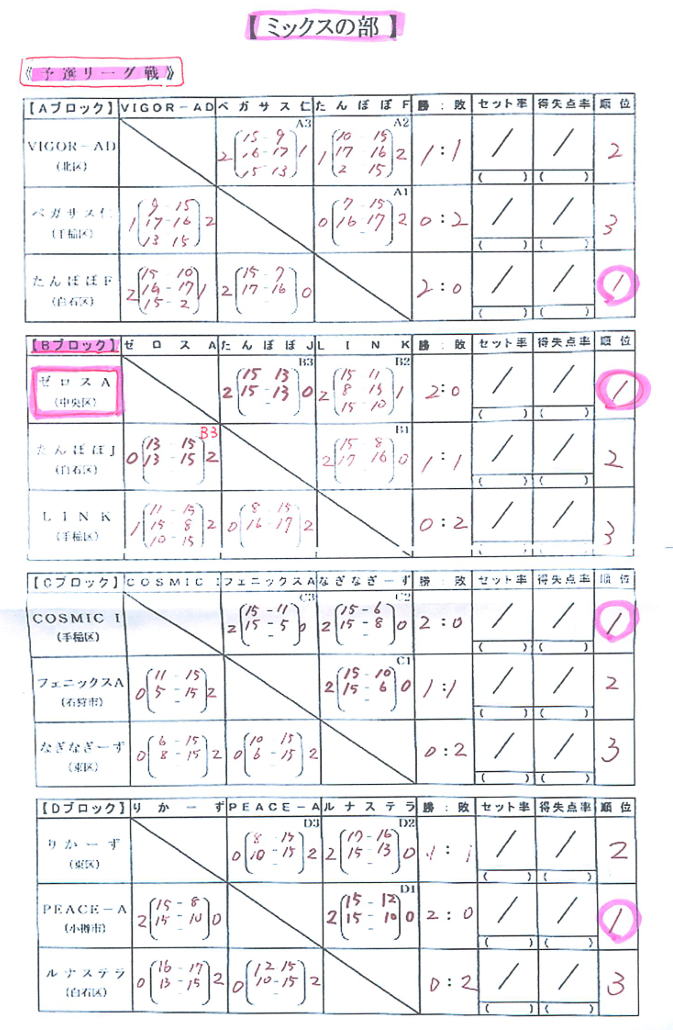 【ミックスの部】
《予選リーグ戦》
【Aブロック】 VIGOR-AD ペガサス仁 たんぽぽF 勝:敗 セット率 得失点率 順位
VIGOR-AD (北区) A3 2 (15-9 16-17 15-13) 1 A2 1 (10 15 17 16 2 15) 2 1:1 / ( ) / ( ) 2
ペガサス仁 (手稲区) 1 (9-15 17-16 13 15) 2 A1 0 (7-15 16 17 -) 2 0:2 / ( ) / ( ) 3
たんぽぽF (白石区) 2 (15 10 16-17 15-2) 1 2 (15-7 17-16 -) 0 2:0 / ( ) / ( ) 1
【Bブロック】 ゼロスA たんぽぽJ LINK 勝:敗 セット率 得失点率 順位
ゼロスA (中央区) B3 2 (15 13 15-13 -) 0 B2 2 (15 11 8 15 15-10) 1 2:0 / ( ) / ( ) 1
たんぽぽJ (白石区) B3 0 (13-15 13-15 -) 2 B1 2 (15 8 17 16 -) 0 1:1 / ( ) / ( ) 2
LINK (手稲区) 1 (11-15 15-8 10-15) 2 0 (8-15 16-17 -) 2 0:2 / ( ) / ( ) 3
【Cブロック】 COSMIC I フェニックスA なぎなぎーず 勝:敗 セット率 得失点率 順位
COSMIC I (手稲区) C3 2 (15-11 15-5 -) 0 C2 2 (15-6 15-8 -) 0 2:0 / ( ) / ( ) 1
フェニックスA (石狩市) 0 (11-15 5-15 -) 2 C1 2 (15-10 15-6 -) 0 1:1 / ( ) / ( ) 2
なぎなぎーず (東区) 0 (6-15 8-15 -) 2 0 (10 15 6-15 -) 2 0:2 / ( ) / ( ) 3
【Dブロック】 りかーず PEACE-A ルナステラ 勝:敗 セット率 得失点率 順位
りかーず (東区) D3 0 (8-15 10-15 -) 2 D2 2 (17-16 15-13 -) 0 1:1 / ( ) / ( ) 2
PEACE-A (小樽市) 2 (15-8 15-10 -) 0 D1 2 (15-12 15-10 -) 0 2:0 / ( ) / ( ) 1
ルナステラ (白石区) 0 (16-17 13-15 -) 2 0 (12 15 10-15 -) 2 0:2 / ( ) / ( ) 3